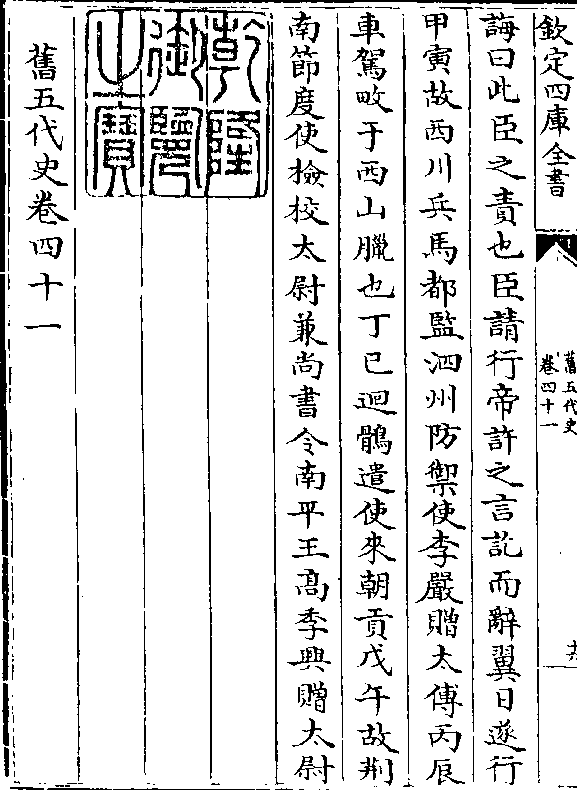 欽定四庫全書
舊五代史
卷四十一
十六
誨曰此臣之責也臣請行帝許之言訖而辭翼日遂行
甲寅故西川兵馬都監泗州防禦使李嚴贈太傅丙辰
車駕畋于西山臘也丁巳迴鶻遣使來朝貢戊午故荆
南節度使檢校太尉兼尚書令南平王髙季興贈太尉
乾隆
御覽
之寶
舊五代史卷四十一